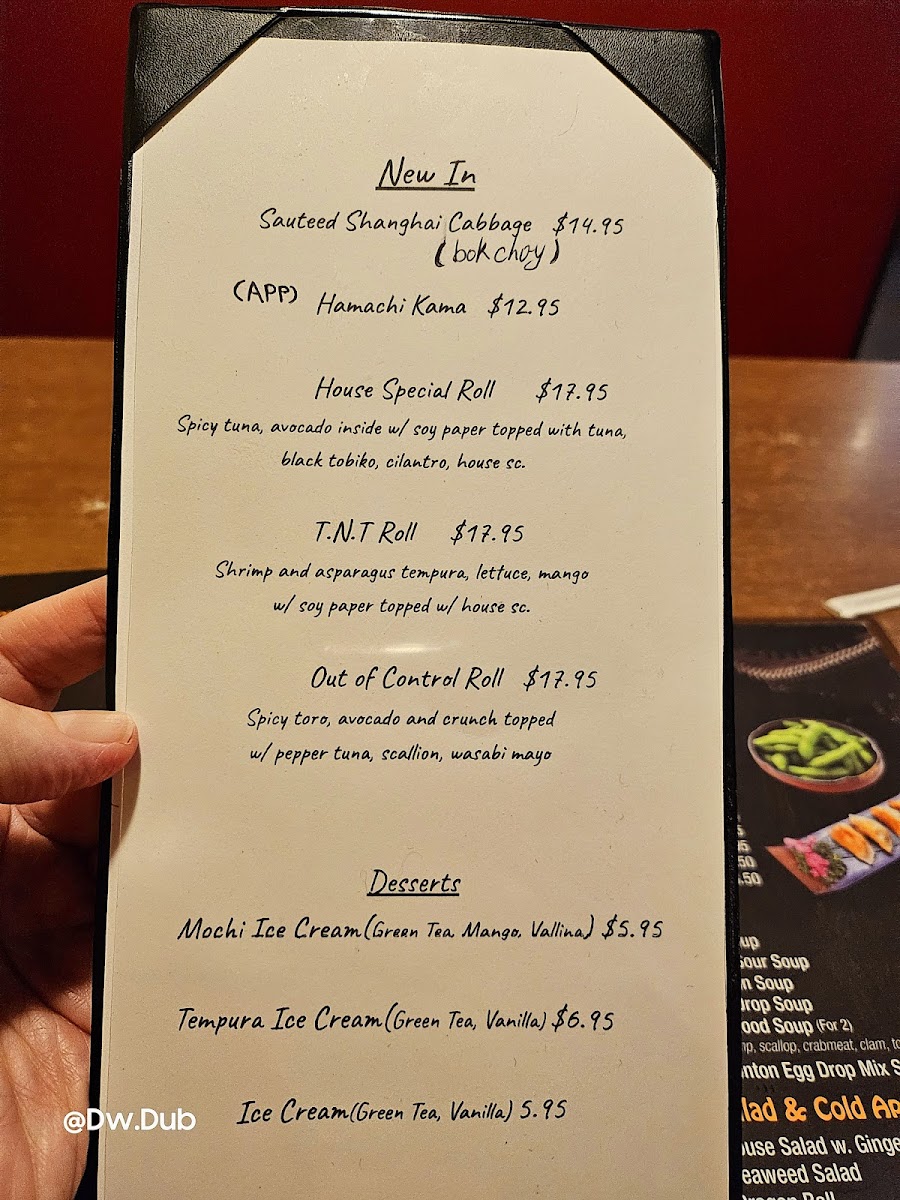 New In
Sauteed Shanghai Cabbage $14.95
(bok choy)
(APP) Hamachi Kama $12.95
House Special Roll $17.95
Spicy tuna, avocado inside w/ soy paper topped with tuna,
black tobiko, cilantro, house sc.
T.N.T Roll $17.95
Shrimp and asparagus tempura, lettuce, mango
w/ soy paper topped w/ house sc.
Out of Control Roll $17.95
Spicy toro, avocado and crunch topped
w/ pepper tuna, scallion, wasabi mayo
Desserts
Mochi Ice Cream(Green Tea, Mango, Vallina) $5.95
Tempura Ice Cream(Green Tea, Vanilla) $6.95
Ice Cream(Green Tea, Vanilla) 5.95
@Dw.Dub
.50
.50
up
our Soup
n Soup
rop Soup
ood Soup (For 2)
p, scallop, crabmeat, clam, to
nton Egg Drop Mix S
lad & Cold Ap
use Salad w. Ginge
eaweed Salad